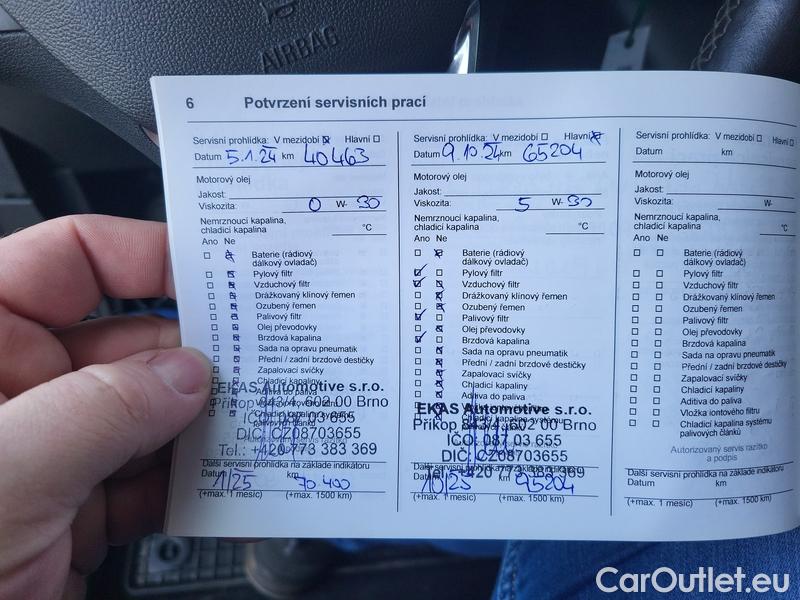 AIRBAG
6 Potvrzení servisních prací
Servisní prohlídka: V mezidobí Hlavní
Datum 5.1.24 km 40463
Motorový olej
Jakost:
Viskozita: 0 W- 30
Nemrznoucí kapalina,
chladicí kapalina °C
Ano Ne
Baterie (rádiový
dálkový ovladač)
Pylový filtr
Vzduchový filtr
Drážkovaný klínový řemen
Ozubený řemen
Palivový filtr
Olej převodovky
Brzdová kapalina
Sada na opravu pneumatik
Přední / zadní brzdové destičky
Zapalovací svíčky
Chladicí kapaliny
Aditiva do paliva
EKAS Automotive s.r.o.
Příkop 843/4, 602 00 Brno
IČO: 087 03 655
DIČ: CZ08703655
Tel.: +420 773 383 369
Další servisní prohlídka na základě indikátoru
Datum km
1/25 70.400
(+max. 1 měsíc) (+max. 1500 km)
Servisní prohlídka: V mezidobí Hlavní
Datum 9.10.24 km 65204
Motorový olej
Jakost:
Viskozita: 5 W- 30
Nemrznoucí kapalina,
chladicí kapalina °C
Ano Ne
Baterie (rádiový
dálkový ovladač)
Pylový filtr
Vzduchový filtr
Drážkovaný klínový řemen
Ozubený řemen
Palivový filtr
Olej převodovky
Brzdová kapalina
Sada na opravu pneumatik
Přední / zadní brzdové destičky
Zapalovací svíčky
Chladicí kapaliny
Aditiva do paliva
EKAS Automotive s.r.o.
Příkop 843/4, 602 00 Brno
IČO: 087 03 655
DIČ: CZ08703655
Tel.: +420 773 383 369
Další servisní prohlídka na základě indikátoru
Datum km
10/25 95204
(+max. 1 měsíc) (+max. 1500 km)
Servisní prohlídka: V mezidobí Hlavní
Datum km
Motorový olej
Jakost:
Viskozita: W-
Nemrznoucí kapalina,
chladicí kapalina °C
Ano Ne
Baterie (rádiový
dálkový ovladač)
Pylový filtr
Vzduchový filtr
Drážkovaný klínový řemen
Ozubený řemen
Palivový filtr
Olej převodovky
Brzdová kapalina
Sada na opravu pneumatik
Přední / zadní brzdové destičky
Zapalovací svíčky
Chladicí kapaliny
Aditiva do paliva
Vložka iontového filtru
Chladicí kapalina systému
palivových článků
Autorizovaný servis razítko
a podpis
Další servisní prohlídka na základě indikátoru
Datum km
(+max. 1 měsíc) (+max. 1500 km)
CarOutlet.eu